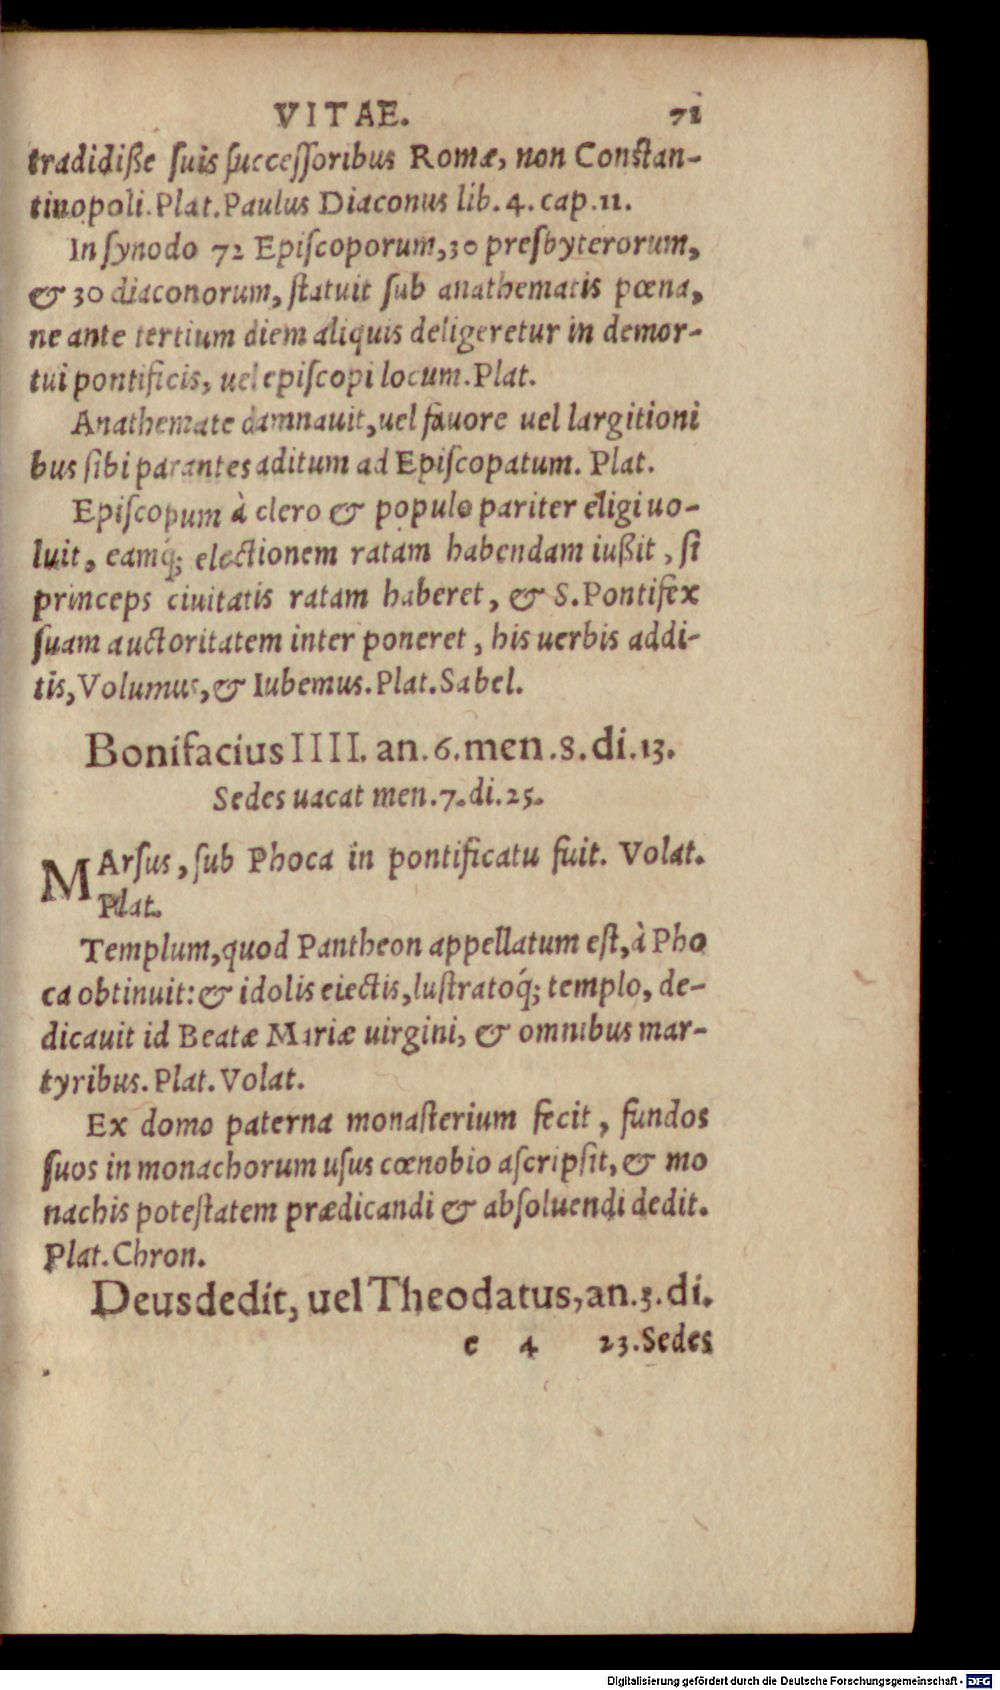 VITAE. 71
tradidiße ſuis ſucceſſoribus Romæ, non Conſtan-
tinopoli. Plat. Paulus Diaconus lib. 4. cap. 11.
In ſynodo 72 Epiſcoporum, 30 preſbyterorum,
& 30 diaconorum, ſtatuit ſub anathematis pœna,
ne ante tertium diem aliquis deligeretur in demor-
tui pontificis, uel epiſcopi locum. Plat.
Anathemate damnauit, uel fauore uel largitioni
bus ſibi parantes aditum ad Epiſcopatum. Plat.
Epiſcopum à clero & populo pariter eligi uo-
luit, eamq́; electionem ratam habendam iußit, ſi
princeps ciuitatis ratam haberet, & S. Pontifex
ſuam auctoritatem inter poneret, his uerbis addi-
tis, Volumus, & Iubemus. Plat. Sabel.
Bonifacius IIII. an. 6. men. 8. di. 13.
Sedes uacat men. 7. di. 25.
MArſus, ſub Phoca in pontificatu fuit. Volat.
Plat.
Templum, quod Pantheon appellatum eſt, à Pho
ca obtinuit: & idolis eiectis, luſtratoq́; templo, de-
dicauit id Beatæ Mariæ uirgini, & omnibus mar-
tyribus. Plat. Volat.
Ex domo paterna monaſterium fecit, fundos
ſuos in monachorum uſus cœnobio aſcripſit, & mo
nachis poteſtatem prædicandi & abſoluendi dedit.
Plat. Chron.
Deusdedit, uel Theodatus, an. 3. di.
e 4 23. Sedes
Digitalisierung gefördert durch die Deutsche Forschungsgemeinschaft - DFG